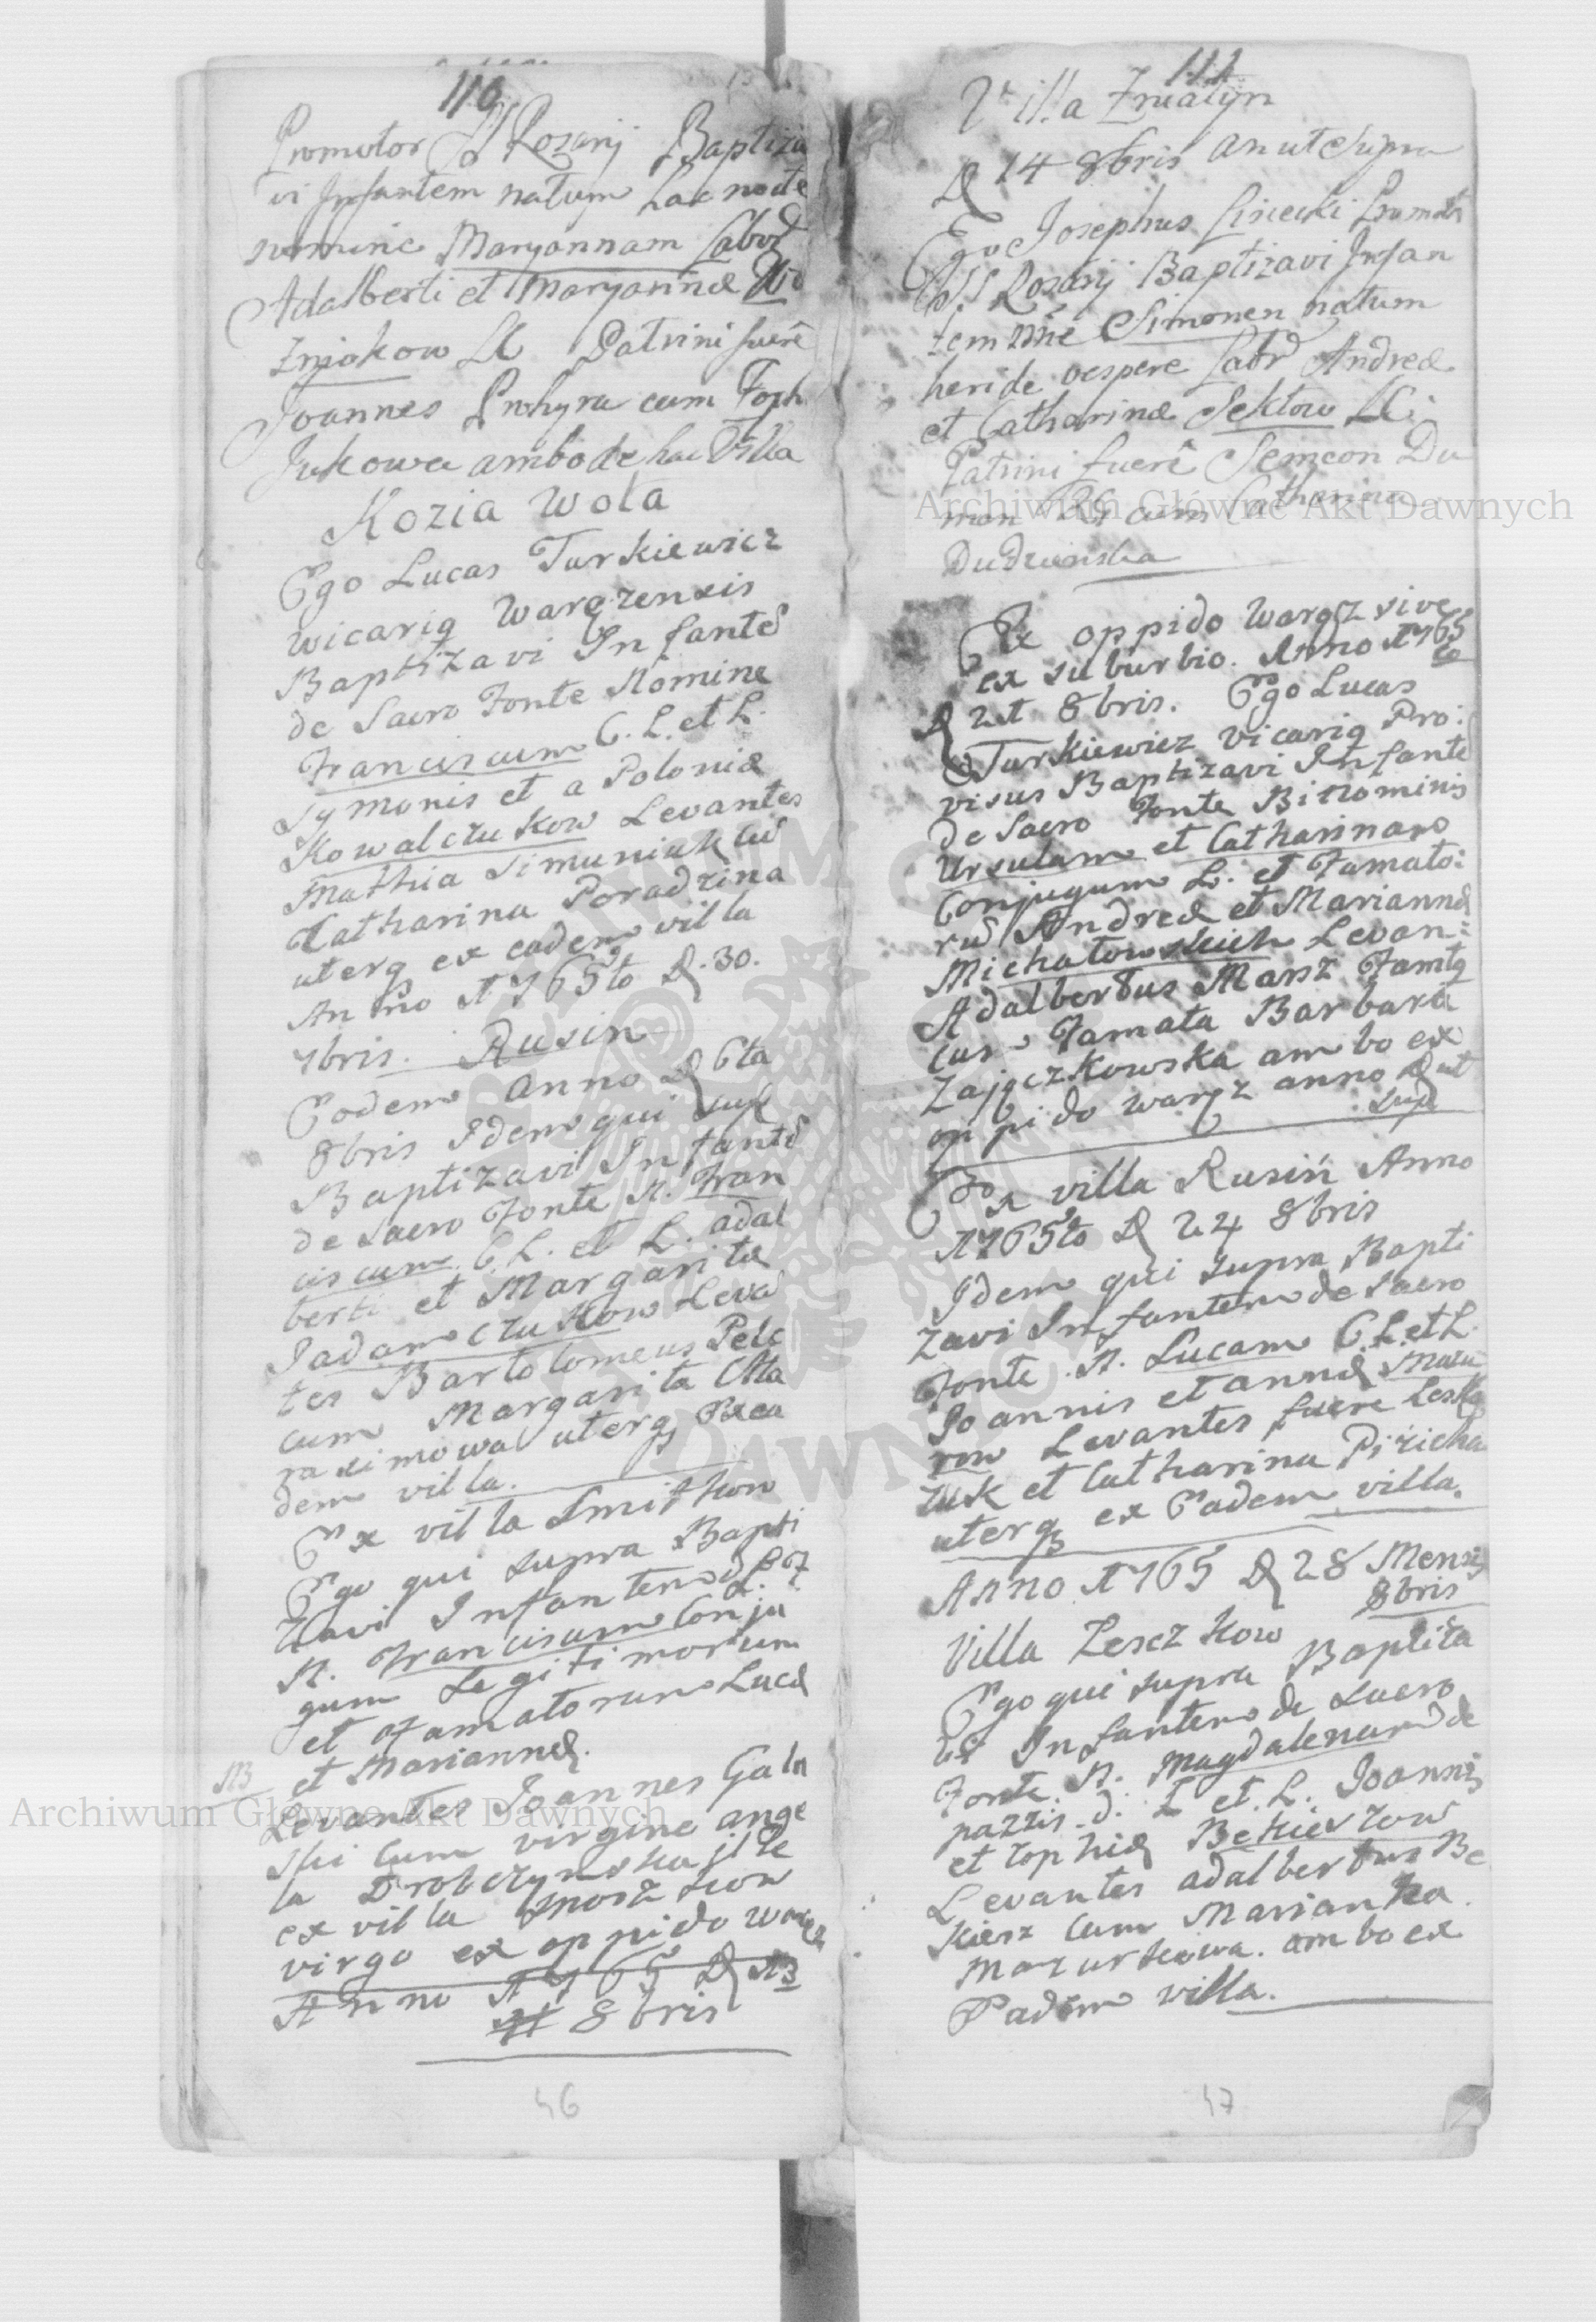 110
Promotor SS Rozarij Baptiza
vi Infantem natum hac nocte
nomine Maryannam Labor
Adalberti et Maryannæ
Patrini fuerê
Joannes cum Zoph
Jukowa ambo de hac Villa
Kozia Wola
Ego Lucas Turkiewicz
Wicariq Warężensis
Baptizavi Infantē
de Sacro Fonte Nomine
Franciscum C. L. et L.
Symonis et a Poloniæ
Kowalczukow Levantes
Mathia Simuniuk cū
Catharina Poradzina
uterq ex eadem villa
An̄no 1765to D. 30.
7bris. Rusin
Eodem Anno D 6ta
8bris Idem qui sup
Baptizavi Infantē
de Sacro Fonte N. Fran
ciscum C. L. et L. adal
berti et Margaritæ
Jadamczukow Leva
tes Bartolomeus Pelc
cum Margarita Ma
raximowa uterq Exea
dem villa.
Ex villa Smitkow
Ego qui supra Bapti
zavi Infantem d S. F.
N. Franciscum Conju
gum Legitimorum
et Famatorum Lucæ
et Mariannæ.
NB
Levantes Joannes Galn
ski cum virgine ange
la Drobczynska ille
ex villa
virgo ex oppido Waręz
Anno 1765 D NB
8bris
46
111
Villa Żniatyn
D 14 8bris An ut Supra
Ego Josephus Lisiecki Promotr
SS Rozarij Baptizavi Infan
tem nne Simonem natum
heri de vespere Labr Andreæ
et Catharinæ Sektow LC.
Patrini fuerê Semeon Du
man cum Catharina
Dudzinska
Ex oppido Waręz sive
ex suburbio. Anno 1765
to
D 21 8bris. Ego Lucas
Turkiewicz Vicariq Pro:
visus Baptizavi Infantē
de Sacro Fonte Binominis
Ursulam et Catharinam
Conjugum L. et Famato:
rū Andreæ et Mariannæ
Michałowskich Levan:
Adalbertus Mansz Famtq
cum Famata Barbara
Zajączkowska ambo ex
oppido Waręz anno D ut
sup
Ex villa Rusin Anno
1765to D 24 8bris
Idem qui supra Bapti
zavi Infantem de Sacro
Fonte N. Lucam C. L. et L.
Joannis et annæ Mazu
row Levantes fuere Lesko
zuk et Catharina Pizicha
uterq ex Eadem villa.
Anno 1765 D 28 Mensis
8bris
Villa Leszczkow
Ego qui supra Baptiza
vi Infantem de Sacro
Fonte N. Magdalenam de
pazzis d. L et. L. Joannis
et Zophiæ Bekieszow
Levantes adalbertus Be
kiesz cum Marianna
Mazurkowa. ambo ex
Eadem villa.
47
Archiwum Główne Akt Dawnych
Archiwum Główne Akt Dawnych
ARCHIWUM GŁÓWNE AKT DAWNYCH